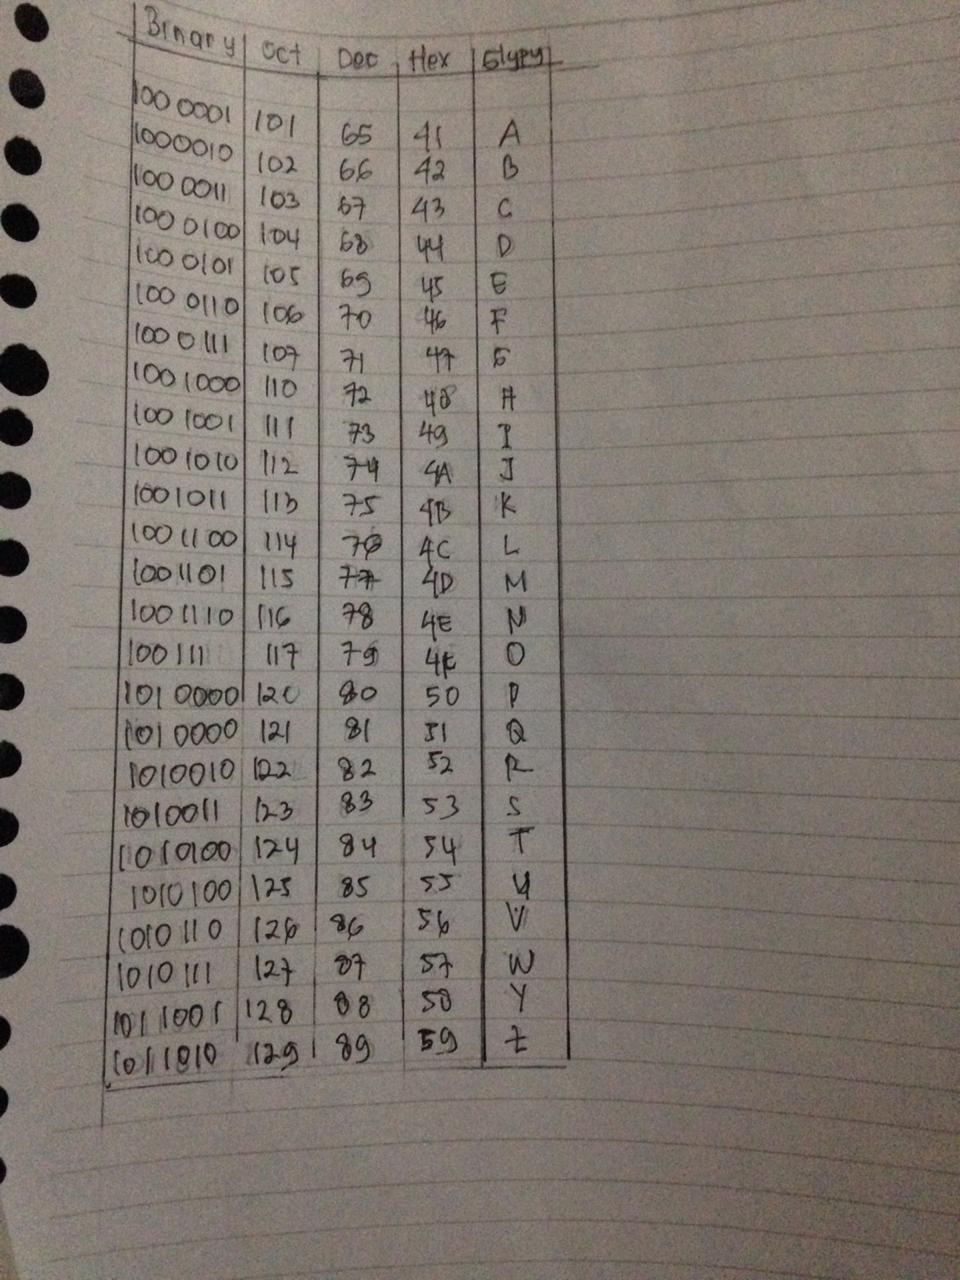 Binary Oct Dec Hex Glypy
100 0001 101 65 41 A
1000010 102 66 42 B
100 0011 103 67 43 C
100 0100 104 68 44 D
100 0101 105 69 45 E
100 0110 106 70 46 F
100 0111 107 71 47 G
100 1000 110 72 48 H
100 1001 111 73 49 I
100 1010 112 74 4A J
1001011 113 75 4B K
100 1100 114 76 4C L
1001101 115 77 4D M
100 1110 116 78 4E N
100111 117 79 O
101 0000 120 80 50 P
101 0000 121 81 51 Q
1010010 122 82 52 R
1010011 123 83 53 S
1010100 124 84 54 T
1010100 125 85 55 U
1010 110 126 86 56 V
1010 111 127 87 57 W
101 1001 128 88 58 Y
1011010 129 89 59 Z